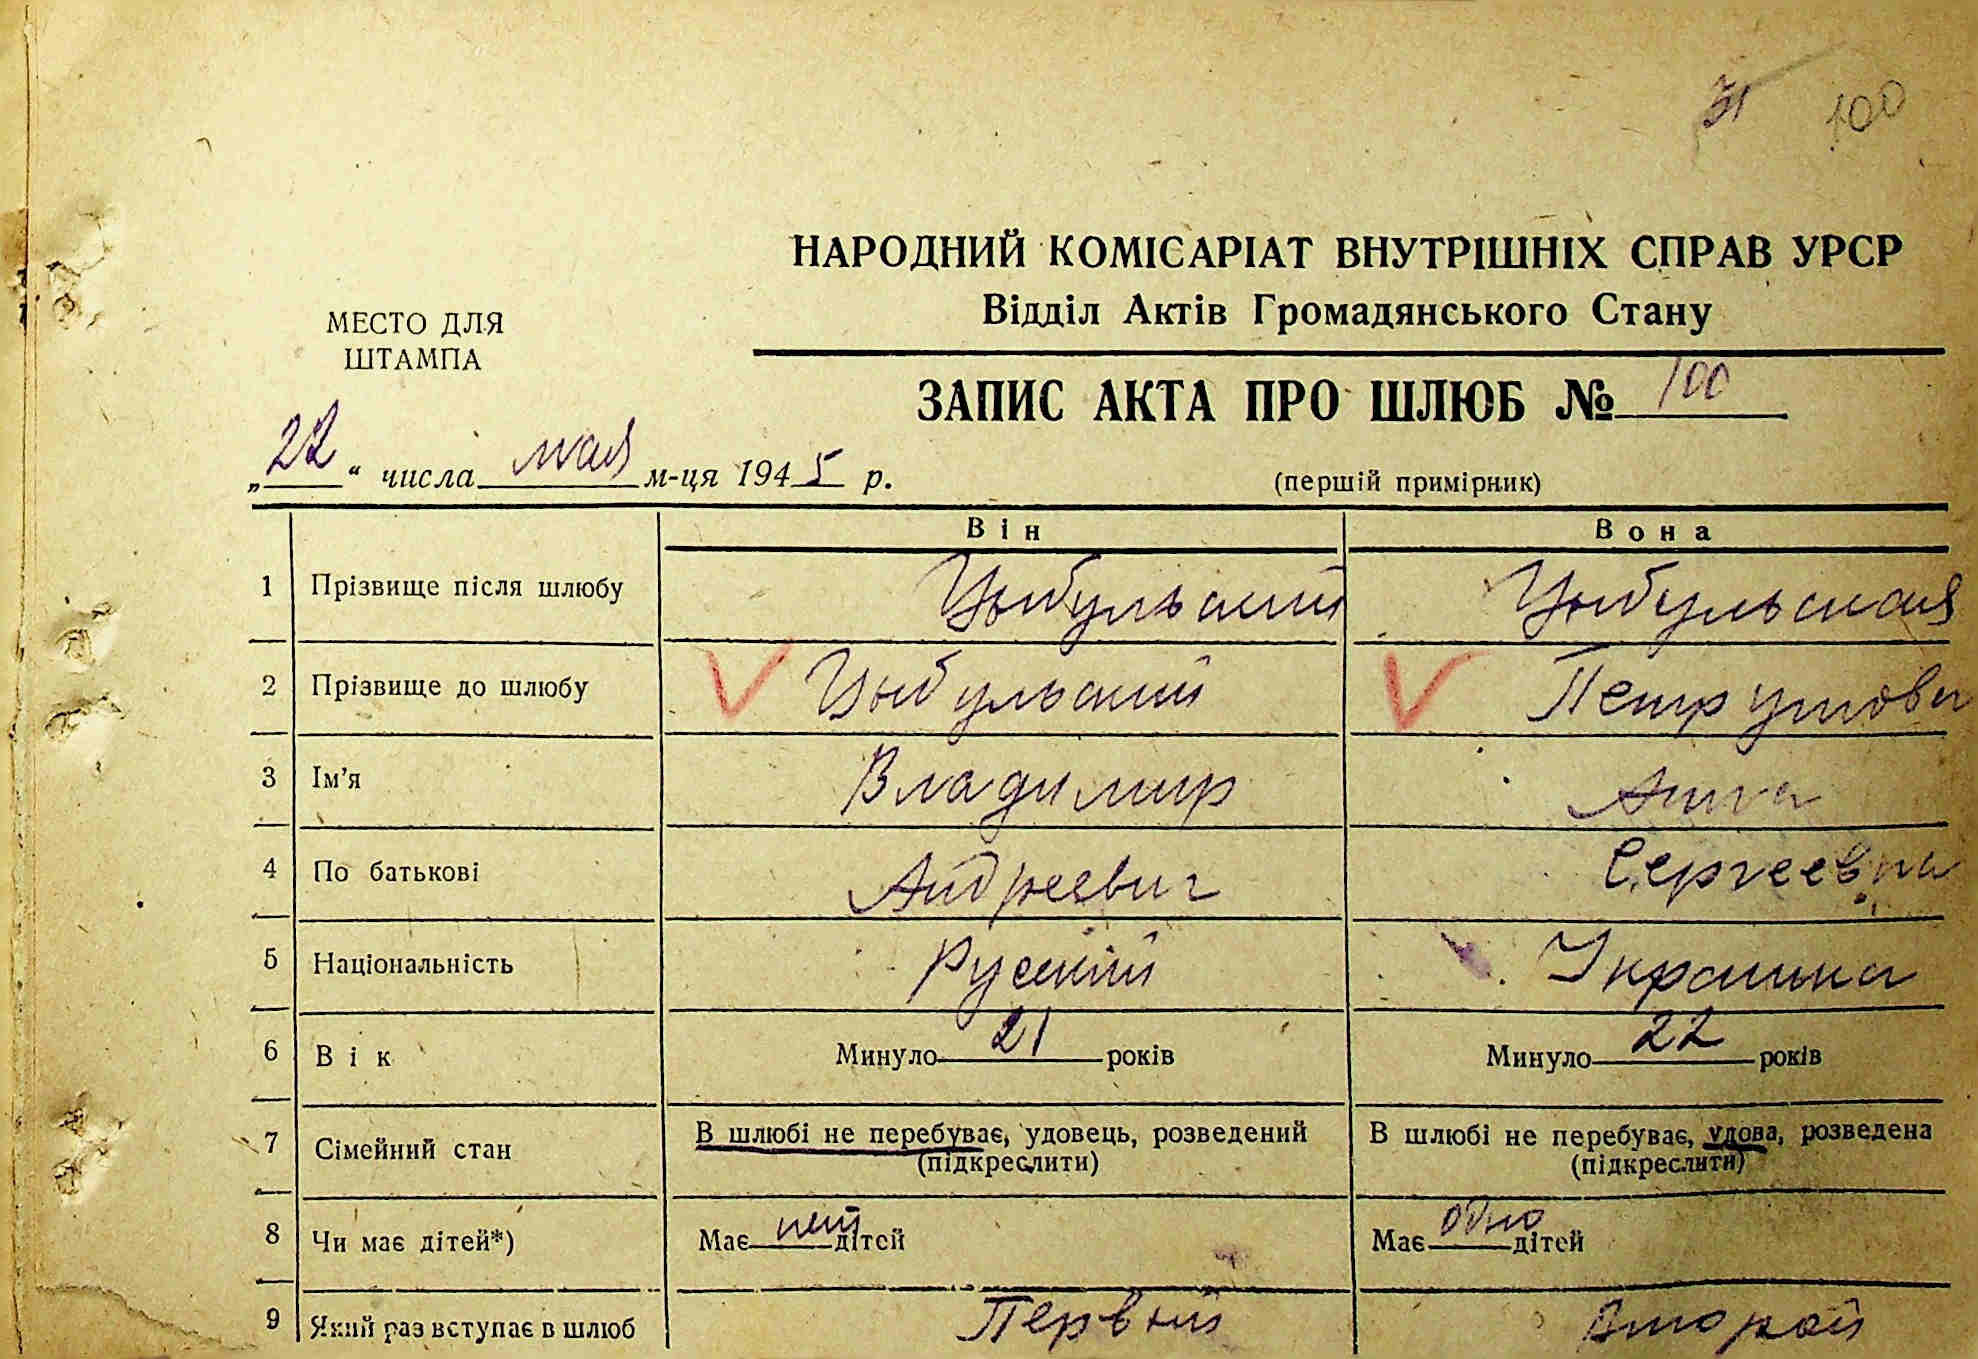 31 100
НАРОДНИЙ КОМІСАРІАТ ВНУТРІШНІХ СПРАВ УРСР
Відділ Актів Громадянського Стану
МЕСТО ДЛЯ
ШТАМПА
ЗАПИС АКТА ПРО ШЛЮБ № 100
„22“ числа мая м-ця 1945 р.
(першій примірник)
Він Вона
1 Прізвище після шлюбу Цыбульский Цыбульская
2 Прізвище до шлюбу Цыбульский
3 Ім'я Владимир Анна
4 По батькові Андреевич Сергеевна
5 Національність Русский Украинка
6 Вік Минуло 21 років Минуло 22 років
7 Сімейний стан В шлюбі не перебуває, удовець, розведений В шлюбі не перебуває, удова, розведена
(підкреслити) (підкреслити)
8 Чи має дітей*) Має нет дітей Має одно дітей
9 Який раз вступає в шлюб Первый Второй